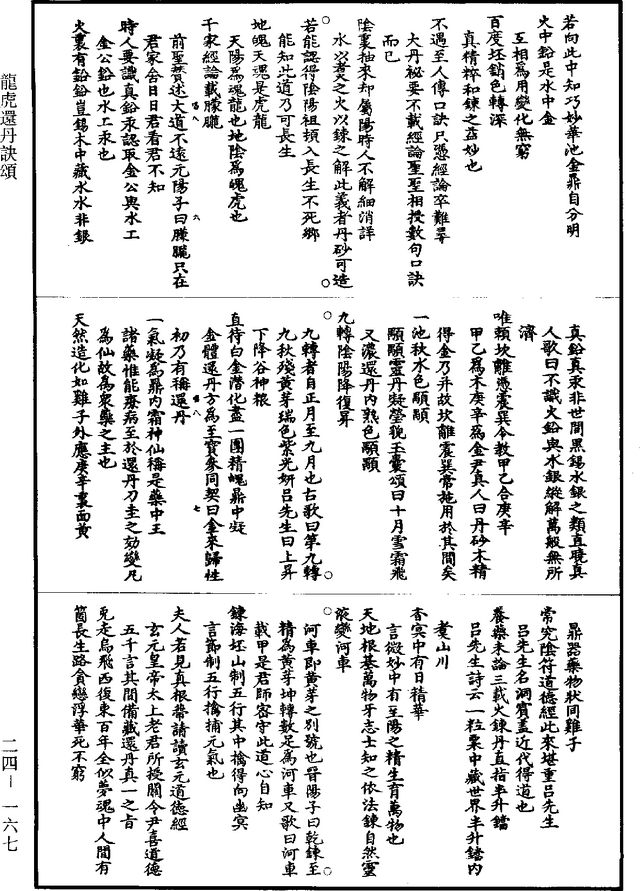 龍虎還丹訣頌
二四—一六七
若向此中知巧妙華池金鼎自分明
火中鉛是水中金
互相爲用變化無窮
百度坯銷色轉深
真精粹和鍊之益妙也
不遇至人傳口訣只憑經論卒難尋
大丹祕要不載經論聖聖相授數句口訣
而已
陰裏抽來却屬陽時人不解細消詳
水以煑之火以鍊之解此義者丹砂可造
若能認得陰陽祖頓入長生不死鄉
能知此道乃可長生
地魄天魂是虎龍
天陽爲魂龍也地陰爲魄虎也
千家經論載朦朧
前聖賢述大道不遠元陽子曰朦朧只在
君家舍日日君看君不知
時人要識真鉛汞認取金公與水工
金公鉛也水工汞也
火裏有鉛鉛豈錫木中藏水水非銀
真鉛真汞非世間黑錫水銀之類直曉真
人歌曰不識火鉛與水銀縱解萬般無所
濟
唯賴坎離憑震巽令教甲乙合庚辛
甲乙爲木庚辛爲金尹真人曰丹砂木精
得金乃并故坎離震巽常施用於其間矣
一池秋水色顒顒
顒顒靈丹凝瑩貌玉壷頌曰十月雪霜飛
又濃還丹內熟色顒顒
九轉陰陽降復昇
九轉者自正月至九月也古歌曰第九轉
九秋殘黃芽瑞色紫光妍吕先生曰上昇
下降谷神粮
直待白金潛化盡一團精魄鼎中凝
金體還丹方爲至寶參同契曰拿來歸性
初乃有稱還丹
一氣凝爲鼎內霜神仙稱是藥中王
諸藥惟能療病至於還丹刀圭之効變凡
爲仙故爲衆藥之主也
天然造化如雞子外應庚辛裏面黃
鼎器藥物狀同雞子
常究陰符道德經此來堪重吕先生
吕先生名洞賓蓋近代得道也
養藥未論三載火鍊丹直指半升鐺
吕先生詩云一粒粟中藏世界半升鐺內
煑山川
杳冥中有日精華
言微妙中有至陽之精生育萬物也
天地根基萬物牙志士知之依法鍊自然靈
液變河車
河車即黃芽之别號也晉陽子曰乾鍊至
精為黃芽坤轉數足爲河車又歌曰河車
載甲是君師密守此道心自知
鍊海坯山制五行其中擒得向幽冥
言節制五行擒捕元氣也
夫人若見真根蔕請讀玄元道德經
玄元皇帝太上老君所授關令尹喜道德
五千言其間備藏還丹真一之旨
兎走烏飛西復東百年全似夢魂中人間有
箇長生路貪戀浮華死不窮